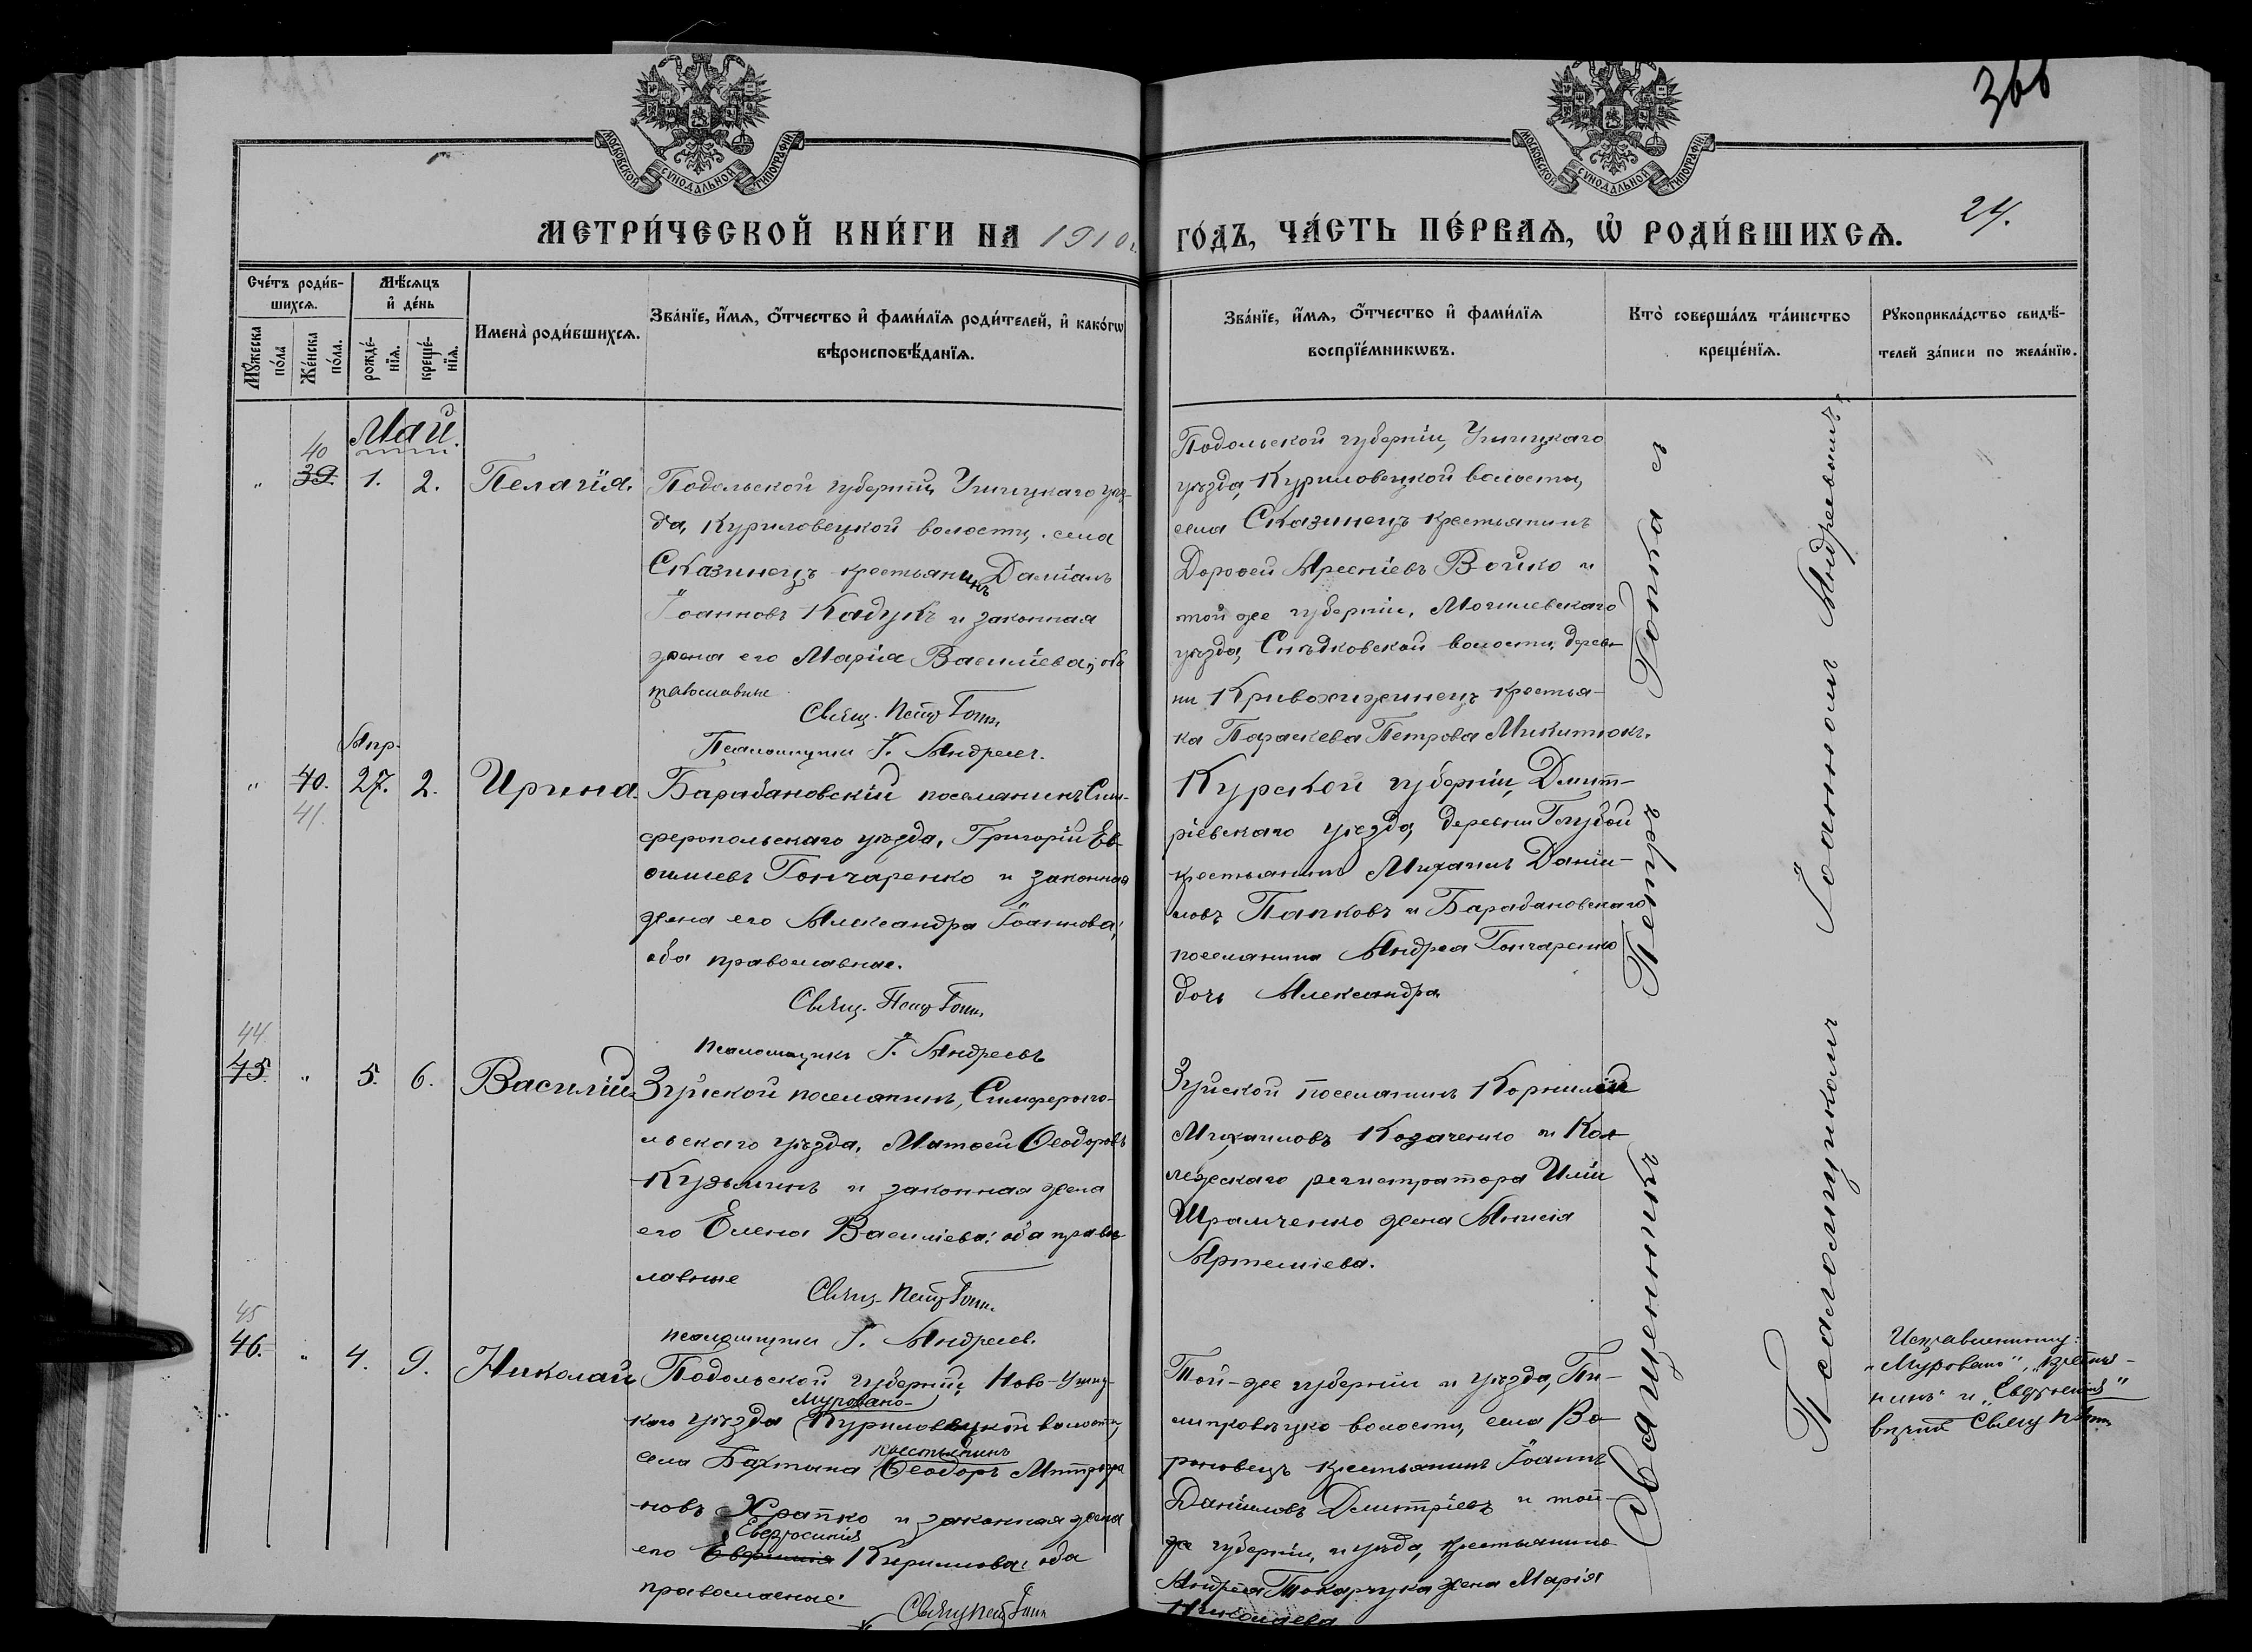 366
МОСКОВСКОЙ СѴНОДАЛЬНОЙ ТИПОГРАФІИ.
МОСКОВСКОЙ СѴНОДАЛЬНОЙ ТИПОГРАФІИ.
МЕТРИ́ЧЕСКОЙ КНИ́ГИ НА 1910 г.
ГО́ДЪ, ЧА́СТЬ ПЕ́РВАѦ, Ѡ҆ РОДИ́ВШИХСѦ.
24.
Сче́тъ роди́в-
шихсѧ.
Мꙋ́жеска по́ла
Же́нска по́ла.
Мѣ́сѧцъ
и҆ де́нь
рожде́-нїѧ.
креще́-нїѧ.
Имена̀ роди́вшихсѧ.
Зва́нїе, и҆́мѧ, ѻ҆́тчество и҆ фами́лїѧ роди́телей, и҆ како́гѡ
вѣроисповѣ́данїѧ.
Зва́нїе, и҆́мѧ, ѻ҆́тчество и҆ фами́лїѧ
воспрїе́мникѡвъ.
Кто̀ соверша́лъ та́инство
креще́нїѧ.
Рꙋкоприкла́дство свидѣ́-
телей за́писи по жела́нїю.
Май.
40
" 39. 1. 2. Пелагія.
Подольской губерніи, Ушицкаго уѣз-
да, Куриловецкой волости, села
Сказинецъ крестьянинъ Даміанъ
Іоанновъ Кадукъ и законная
жена его Марія Васильева; оба
православные
Свящ. Петр Гопк
Псаломщикъ І. Андреев.
Подольской губерніи, Ушицкаго
уѣзда, Куриловецкой волости,
села Сказинецъ крестьянинъ
Дороѳей Арсеніевъ Бойко и
той же губерніи, Могилевскаго
уѣзда, Снѣдковской волости, дерев-
ни Кривохижинецъ крестья-
ка Параскева Петрова Микитюкъ.
Апр.
" 40. 27. 2. Ирина.
41.
Барабановскій поселянинъ Сим-
феропольскаго уѣзда, Григорій Ев-
ѳиміевъ Гончаренко и законная
жена его Александра Іоаннова;
оба православные.
Свящ. Петр Гопк
Псаломщикъ І. Андреевъ
Курской губерніи, Дмит-
ріевскаго уѣзда, деревни Голубой
крестьянинъ Михаилъ Даніи-
ловъ Папковъ и Барабановскаго
поселянина Андрея Гончаренко
дочь Александра.
44
45. " 5. 6. Василій.
Зуйской поселянинъ, Симферопо-
льскаго уѣзда, Матѳей Ѳеодоровъ
Кузьминъ и законная жена
его Елена Васильева: оба правос-
лавные
Свящ. Петр Гопк
псаломщикъ І. Андреев.
Зуйской поселянинъ Корнилій
Михаиловъ Козаченко и Кол-
лежскаго регистратора Иліи
Шрамченко жена Анисія
Артеміева.
45
46. " 4. 9. Николай
Подольской губерніи, Ново-Ушиц-
Муровано-
каго уѣзда Куриловецкой волости,
крестьянинъ
села Бахтына Ѳеодоръ Митрофа-
новъ Храпко и законная жена
Евфросинія
его Евфимія Кириллова: оба
православные.
Свящ Петр Гопк
Той-же губерніи и уѣзда,
волости, села Во-
роновецъ крестьянинъ Іоаннъ
Даніиловъ Дмитріевъ и той-
же губерніи, и уѣзда, крестьянина
Андрея Токарчука жена Марія
Николаева
Исправленному:
"Муровано", "крестья-
нинъ" и "Евфросинія"
вѣрить Свящ Петр
Священникъ Петръ Гопка с
Псаломщикомъ Іоанномъ Андреевымъ.